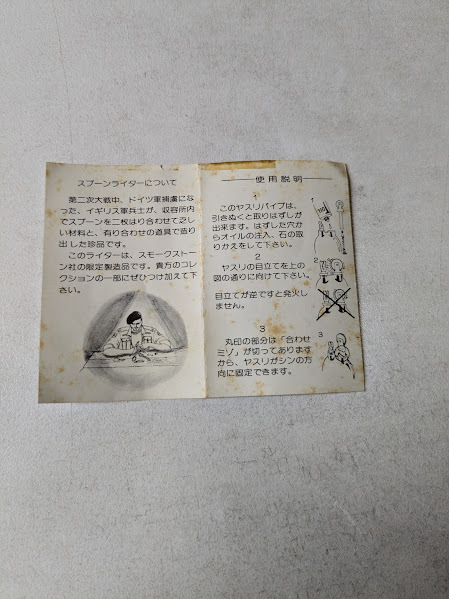 スプーンライターについて
第二次大戦中、ドイツ軍捕虜にな
った、イギリス軍兵士が、収容所内
でスプーンを二枚はり合わせて乏し
い材料と、有り合わせの道具で造り
出した珍品です。
このライターは、スモークストー
ン社の限定製造品です。貴方のコレ
クションの一部にぜひつけ加えて下
さい。
使用説明
1
このヤスリパイプは、
引きぬくと取りはずしが
出来ます。はずした穴か
らオイルの注入、石の取
りかえをして下さい。
2
ヤスリの目立てを上の
図の通りに向けて下さい。
目立てが逆ですと発火し
ません。
3
丸印の部分は「合わせ
ミゾ」が切ってあります
から、ヤスリがシンの方
向に固定できます。
1
2
3